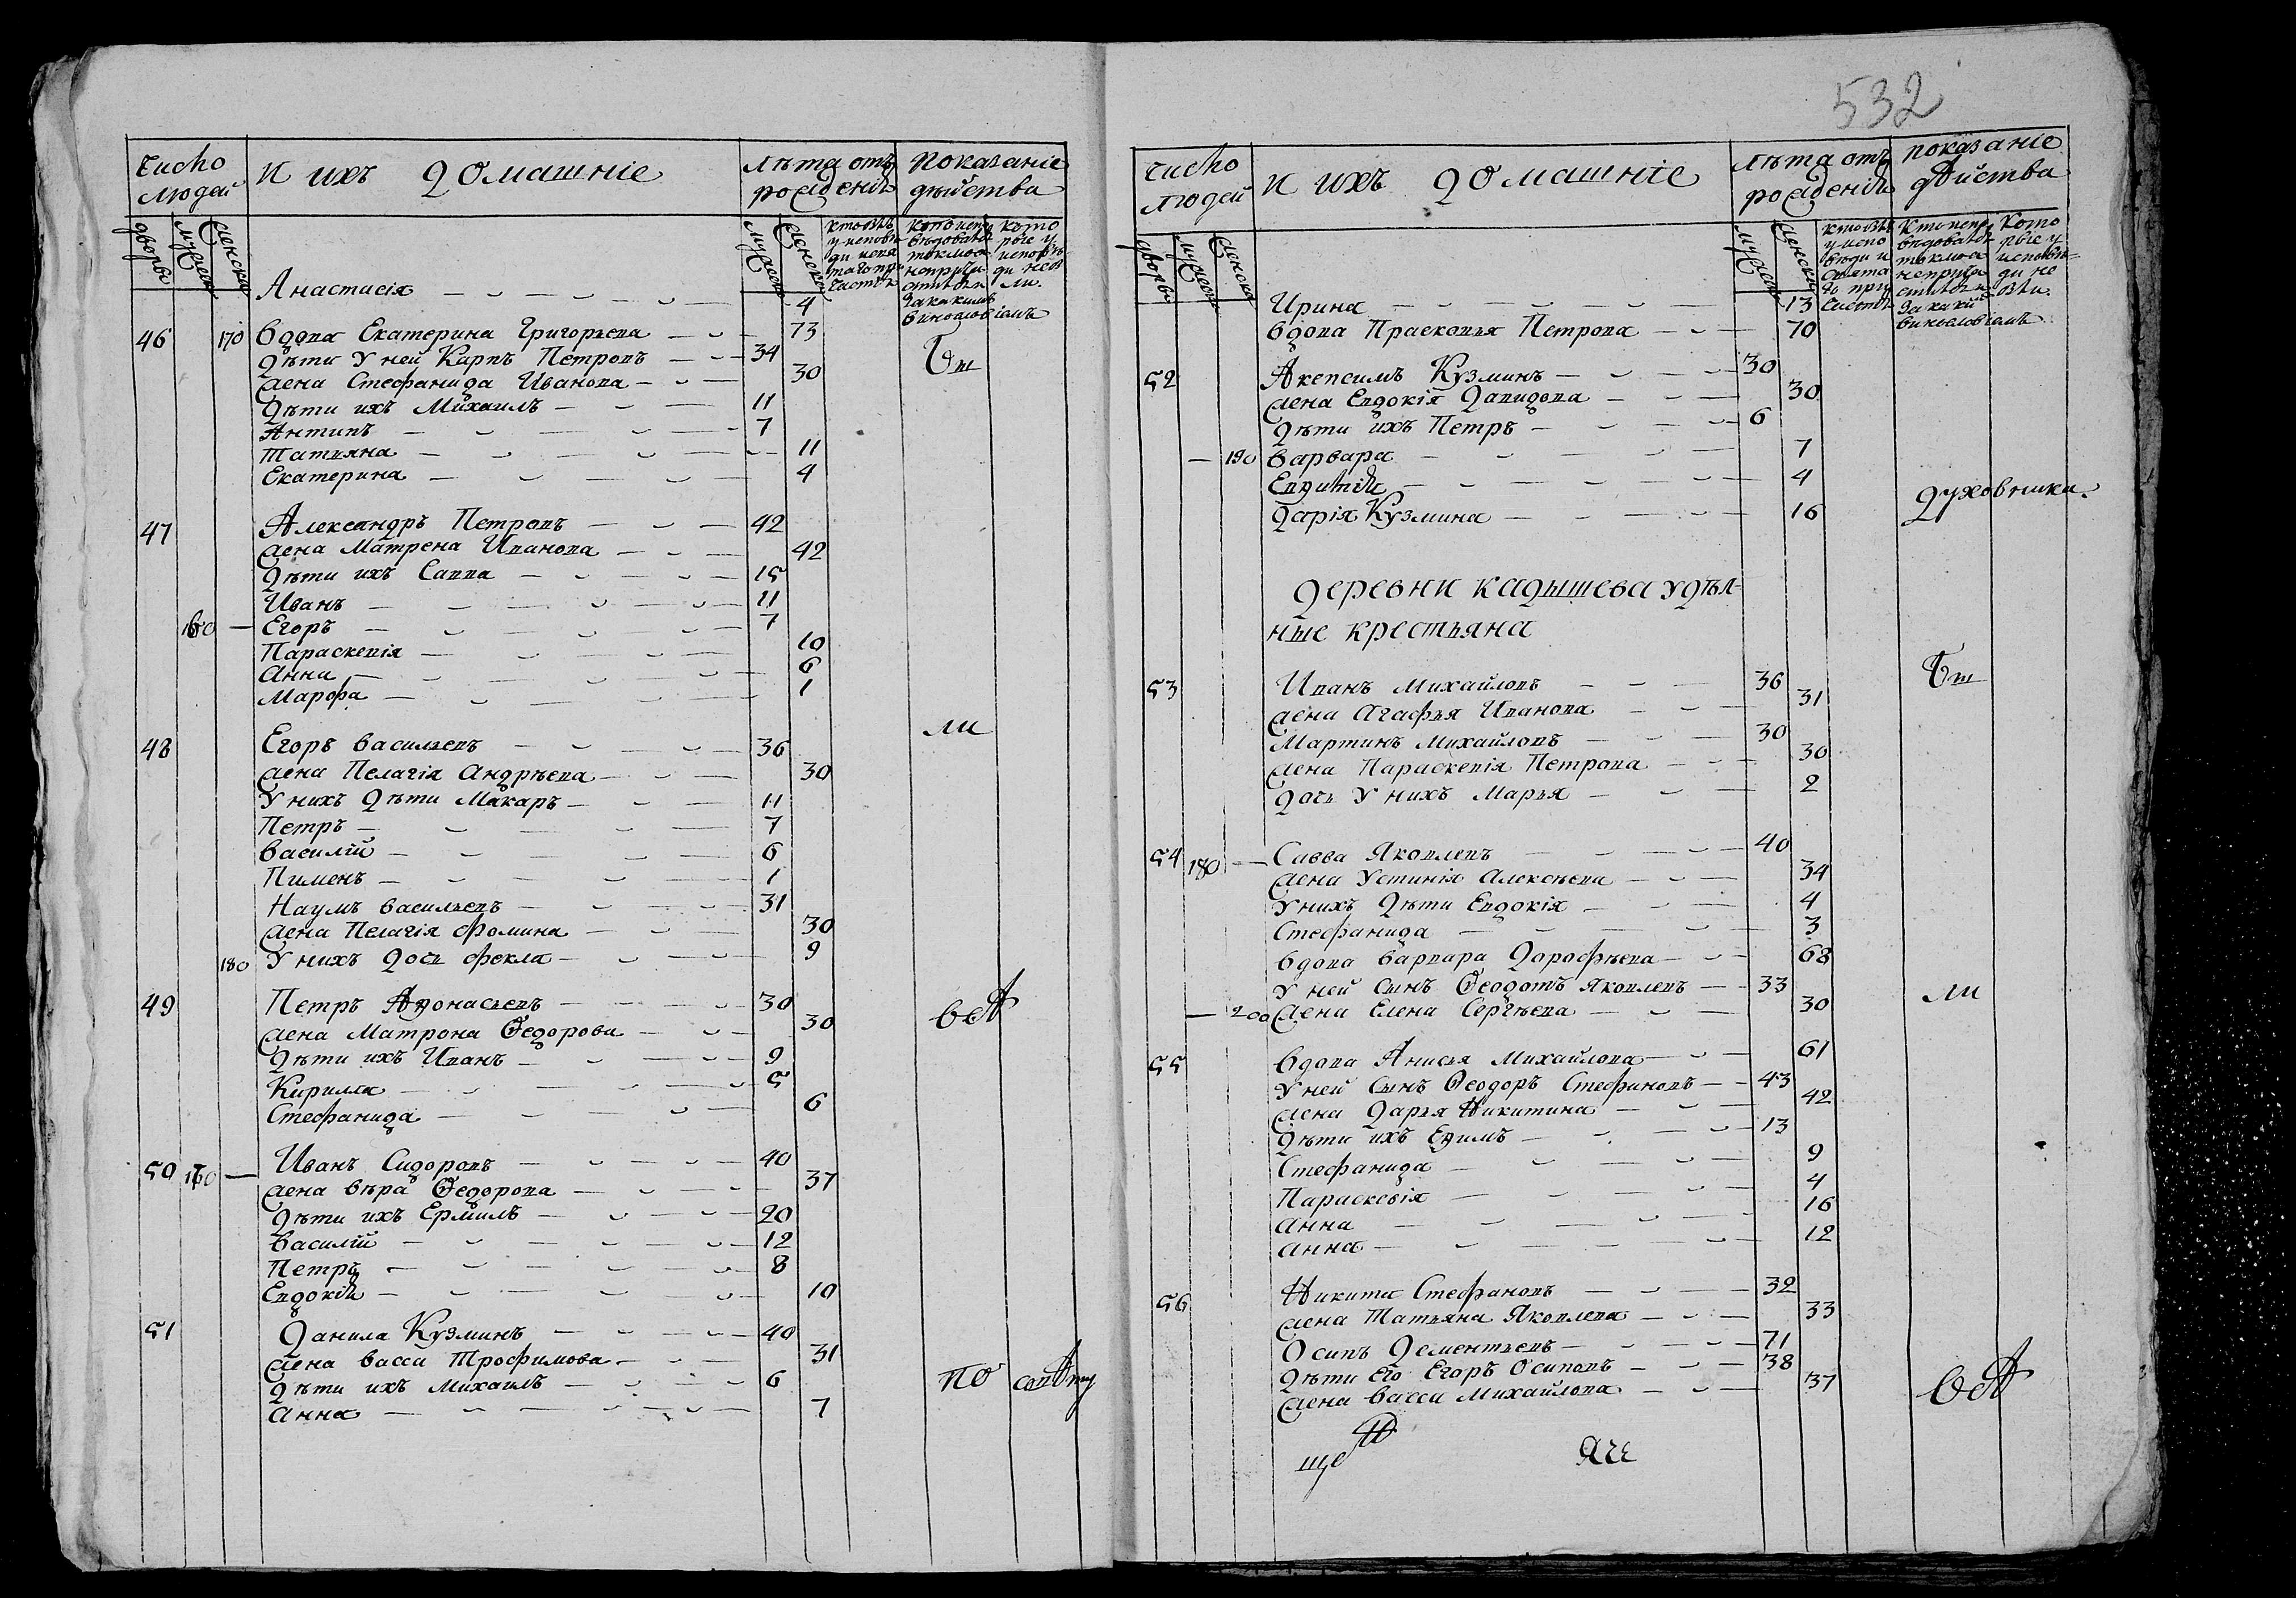 532
Число людей
И ихъ домашніе
Лѣта отъ рожденія
Показаніе дѣйства
дворы мужеск женска
мужеск женски
Анастасія 4
46 170 Вдова Екатерина Григорьева 73
Дѣти у ней Карпъ Петровъ 34
Жена Стефанида Иванова 30
Дѣти ихъ Михаилъ 11
Антипъ 7
Татьяна 11
Екатерина 4
47 Александръ Петровъ 42
Жена Матрена Иванова 42
Дѣти ихъ Савва 15
Иванъ 11
Егоръ 7
Параскевія 10
Анна 6
Марфа 1
ли
48 Егоръ Васильевъ 36
Жена Пелагія Андрѣева 30
У нихъ дѣти Макаръ 11
Петръ 7
Василій 6
Пименъ 1
Наумъ Васильевъ 31
Жена Пелагія Фомина 30
180 У нихъ дочь Фекла 9
49 Петръ Афонасьевъ 30
Жена Матрона Ѳедорова 30
всѣ
Дѣти ихъ Иванъ 9
Кирилла 5
Стефанида 6
50 Иванъ Сидоровъ 40
Жена Вѣра Ѳедорова 37
Дѣти ихъ Ермилъ 20
Василій 12
Петръ 8
Евдокія 10
51 Данила Кузминъ 40
Жена Васса Трофимова 31
Дѣти ихъ Михаилъ 6
по совѣту
Анна 7
Число людей
И ихъ домашніе
Лѣта отъ рожденія
Показаніе дѣйства
дворы мужеск женска
мужеск женски
Ирина 13
Вдова Прасковья Петрова 70
52 Акепсимъ Кузминъ 30
Жена Евдокія Давидова 30
Дѣти ихъ Петръ 6
190 Варвара 7
4
духовника.
Дарія Кузмина 16
Деревни Кадышева удѣл-
ные крестьяна
53 Иванъ Михайловъ 36
Жена Агафья Иванова 31
Мартинъ Михайловъ 30
Жена Параскевія Петрова 30
Дочь у нихъ Марья 2
54 180 Савва Яковлевъ 40
Жена Устинія Алексѣева 34
У нихъ дѣти Евдокія 4
Стефанида 3
Вдова Варвара Дорофѣева 68
У ней сынъ Ѳеодотъ Яковлевъ 33
ли
200 Жена Елена Сергѣева 30
55 Вдова Анисья Михайлова 61
У ней сынъ Ѳеодоръ Стефановъ 43
Жена Дарья Никитина 42
Дѣти ихъ Ефимъ 13
Стефанида 9
Параскевія 4
Анна 16
Анна 12
56 Никита Стефановъ 32
Жена Татьяна Яковлева 33
Осипъ Дементьевъ 71
Дѣти его Егоръ Осиповъ 38
Жена Васса Михайлова 37
всѣ